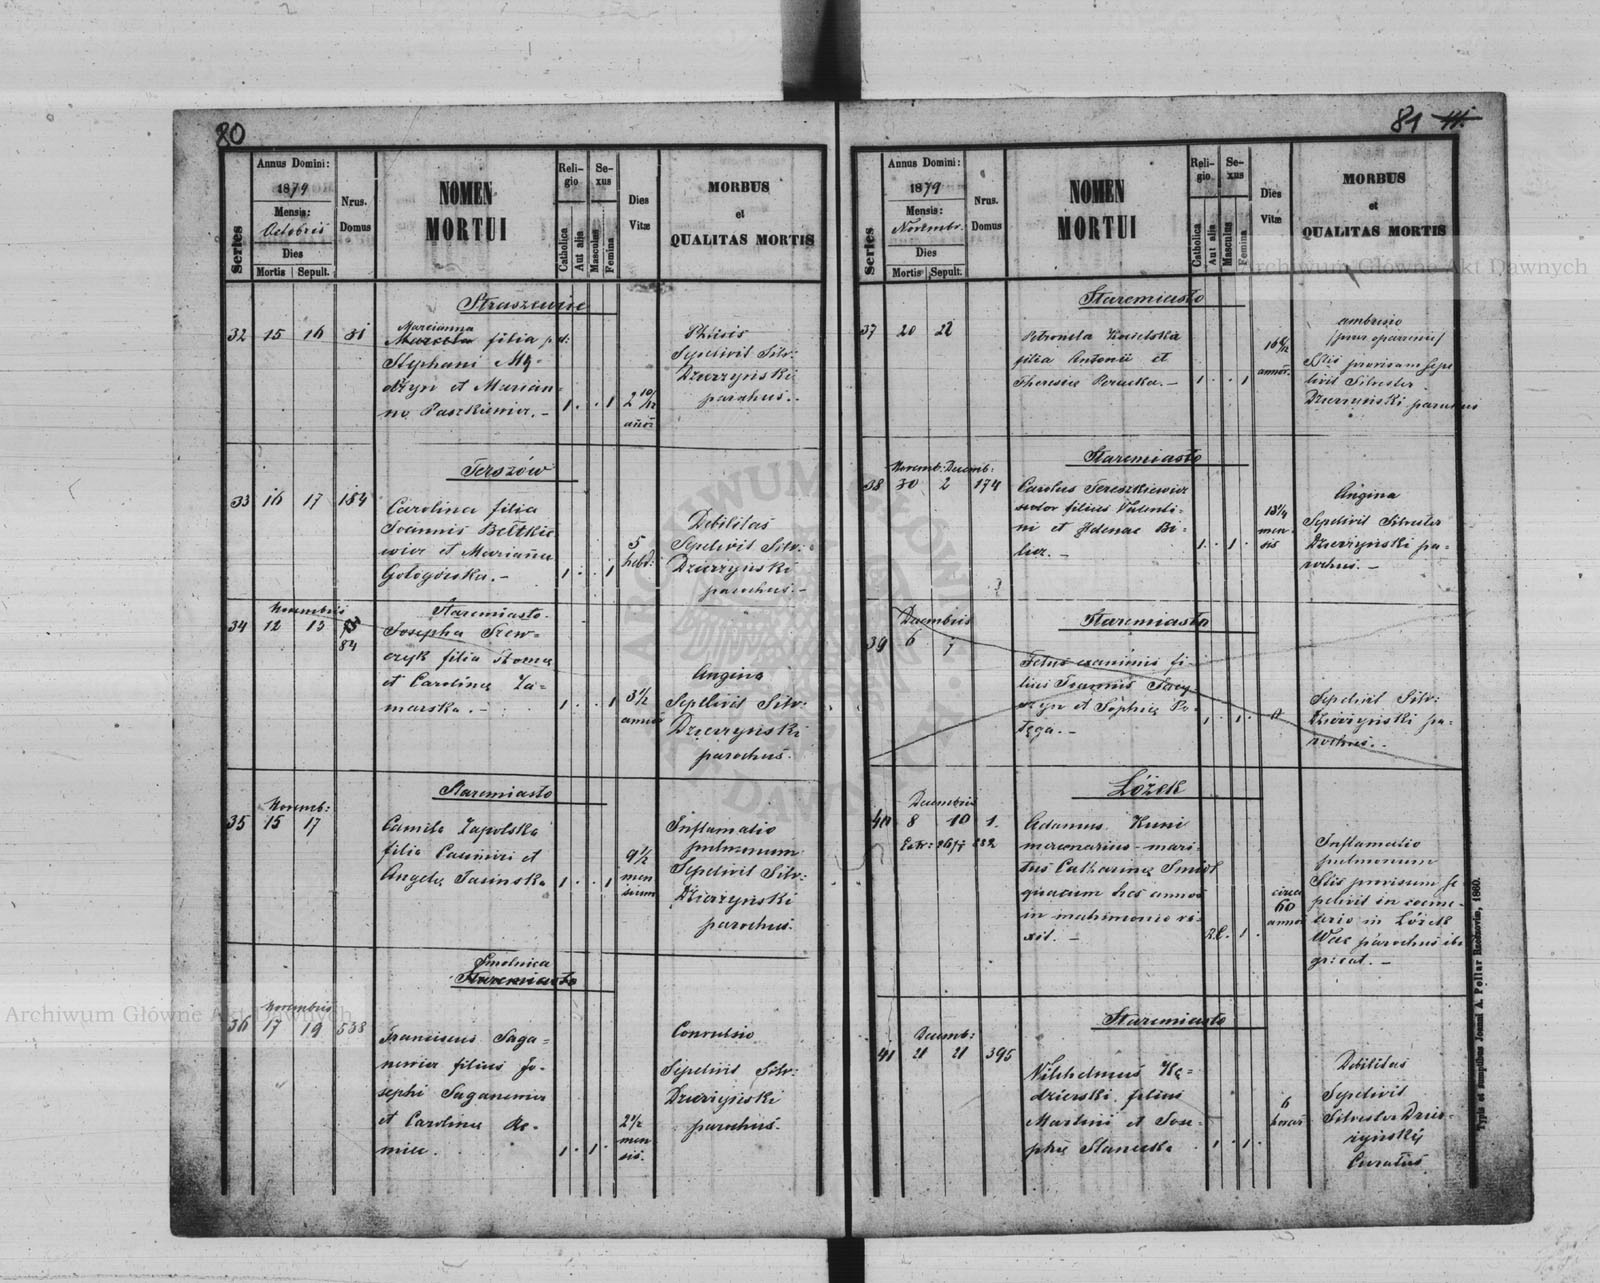 80
Series
Annus Domini:
1879
Mensis:
Octobris
Dies
Mortis Sepult.
Nrus.
Domus
NOMEN
MORTUI
Religio
Catholica
Aut alia
Sexus
Masculus
Femina
Dies
Vitæ
MORBUS
et
QUALITAS MORTIS
Straszewie
32 15 16 31
Marcianna
filia
Stephani
et Marian-
na Paszkiewicz. -
1 . . 1
2 10/12
Phtisis
Sepelivit Silv:
Dzierzyński
parochus.
Terszów
33 16 17 184
Carolina filia
Joannis Bełtkie
wicz et Marianna
Gologórska. -
1 . . 1
5
hebd:
Debilitas
Sepelivit Silv:
Dzierzyński
parochus. -
Novembris
34 12 13
84
Staremiasto.
Josepha Szew-
czyk filia Thomæ
et Carolinæ Za-
marska. -
1 . . 1
3 1/2
annor
Angina
Sepelivit Silv:
Dzierzyński
parochus.
Staremiasto
Novemb:
35 15 17
Camila Zapolska
filia Casimiri et
Angelæ Jasinska
1 . . 1
9 1/2
men
sium
Inflamatio
pulmonum
Sepelivit Silv:
Dzierzyński
parochus.
Smolnica
Staremiasto
Novembris
36 17 19 538
Franciscus Saga-
newicz filius Jo-
sephi Saganewicz
et Carolinæ
1 . 1 .
2 1/2
men
sis.
Convulsio
Sepelivit Silv:
Dzierzyński
parochus.
81
Series
Annus Domini:
1879
Mensis:
Novembr.
Dies
Mortis Sepult.
Nrus.
Domus
NOMEN
MORTUI
Religio
Catholica
Aut alia
Sexus
Masculus
Femina
Dies
Vitæ
MORBUS
et
QUALITAS MORTIS
Staremiasto
37 20 22
Petronela
filia Antonii et
Theresiæ
1 . . 1
annor.
ambustio
Stis provisam sepe
livit Silvester
Dzierzyński parochus
Staremiasto
Novemb: Decemb:
38 30 2 174
Carolus Tereszkiewicz
filius Valenti-
ni et Helenae Bi-
licz. -
1 . 1 .
13 1/4
men-
sis
Angina
Sepelivit Silvester
Dzierzyński pa-
rochus. -
Staremiasto
Decembris
39 6 7
Fetus exanimis fi-
lius Joannis
et Sophiæ Po-
tęga. -
1 . 1 .
0
Sepelivit Silv:
Dzierzyński pa-
rochus.
Lóżek
Decembris
40 8 10 1.
Adamus Kuni
mercenarius mari-
tus Catharinæ
quacum hos annos
in matrimonio vi-
xit. -
R.C. . 1 .
circa
60
annor
Inflamatio
pulmonum
Stis provisum se
pelivit in coeme-
terio in Lóżek
parochus ibi
gr: cat. -
Staremiasto
Decemb:
41 21 21 395
Wilhelmus Kę-
dzierski filius
Martini et Jose-
phæ Stanecka
1 . 1 .
6
horas
Debilitas
Sepelivit
Silvester Dzier-
zyński
Curatus.
Typis et sumptibus Joanni A. Pellar Rzeszovie, 1860.
Archiwum Główne Akt Dawnych
Archiwum Główne Akt Dawnych
ARCHIWUM GŁÓWNE AKT DAWNYCH